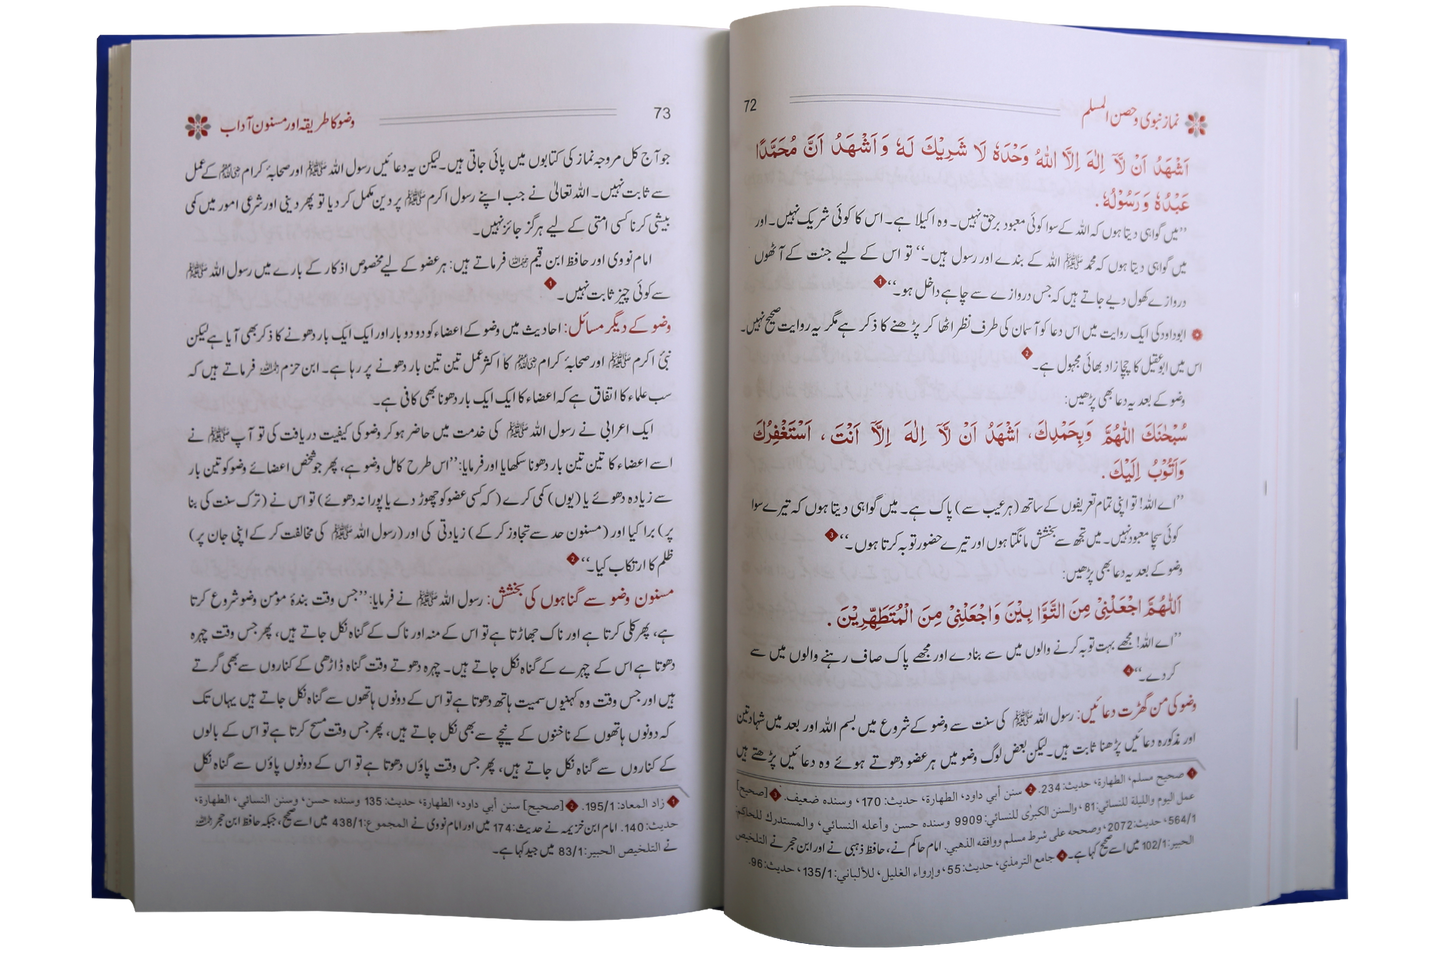 نماز نبوی وحصن المسلم
72
اَشْهَدُ اَنْ لَّآ اِلٰهَ اِلَّا اللهُ وَحْدَهٗ لَا شَرِيْكَ لَهٗ وَاَشْهَدُ اَنَّ مُحَمَّدًا
عَبْدُهٗ وَرَسُوْلُهٗ.
’’میں گواہی دیتا ہوں کہ اللہ کے سوا کوئی معبود برحق نہیں۔ وہ اکیلا ہے۔ اس کا کوئی شریک نہیں۔ اور
میں گواہی دیتا ہوں کہ محمد ﷺ اللہ کے بندے اور رسول ہیں۔‘‘ تو اس کے لیے جنت کے آٹھوں
دروازے کھول دیے جاتے ہیں کہ جس دروازے سے چاہے داخل ہو۔‘‘ 1
ابوداود کی ایک روایت میں اس دعا کو آسمان کی طرف نظر اٹھا کر پڑھنے کا ذکر ہے مگر یہ روایت صحیح نہیں۔
اس میں ابوعقیل کا چچا زاد بھائی مجہول ہے۔ 2
وضو کے بعد یہ دعا بھی پڑھیں:
سُبْحٰنَكَ اللّٰهُمَّ وَبِحَمْدِكَ، اَشْهَدُ اَنْ لَّآ اِلٰهَ اِلَّآ اَنْتَ ، اَسْتَغْفِرُكَ
وَاَتُوْبُ اِلَيْكَ.
’’اے اللہ! تو اپنی تمام تعریفوں کے ساتھ (ہر عیب سے) پاک ہے۔ میں گواہی دیتا ہوں کہ تیرے سوا
کوئی سچا معبود نہیں۔ میں تجھ سے بخشش مانگتا ہوں اور تیرے حضور توبہ کرتا ہوں۔‘‘ 3
وضو کے بعد یہ دعا بھی پڑھیں:
اَللّٰهُمَّ اجْعَلْنِيْ مِنَ التَّوَّا بِيْنَ وَاجْعَلْنِيْ مِنَ الْمُتَطَهِّرِيْنَ .
’’اے اللہ! مجھے بہت توبہ کرنے والوں میں سے بنا دے اور مجھے پاک صاف رہنے والوں میں سے
کر دے۔‘‘ 4
وضو کی من گھڑت دعائیں: رسول اللہ ﷺ کی سنت سے وضو کے شروع میں بسم اللہ اور بعد میں شہادتین
اور مذکورہ دعائیں پڑھنا ثابت ہیں۔ لیکن بعض لوگ وضو میں ہر عضو دھوتے ہوئے وہ دعائیں پڑھتے ہیں
1 صحيح مسلم، الطهارة، حديث: 234. 2 سنن أبي داود، الطهارة، حديث: 170، وسنده ضعيف. 3 [صحيح]
عمل اليوم والليلة للنسائي: 81، والسنن الكبرىٰ للنسائي: 9909 وسنده حسن وأعله النسائي، والمستدرك للحاكم:
564/1، حديث: 2072، وصححه على شرط مسلم ووافقه الذهبي. امام حاکم نے، حافظ ذہبی نے اور ابن حجر نے التلخيص
الحبير: 102/1 میں اسے صحیح کہا ہے۔ 4 جامع الترمذي، حديث: 55، وإرواء الغليل، للألباني: 135/1، حديث: 96.
73
وضو کا طریقہ اور مسنون آداب
جو آج کل مروجہ نماز کی کتابوں میں پائی جاتی ہیں۔ لیکن یہ دعائیں رسول اللہ ﷺ اور صحابۂ کرام رضی اللہ عنہم کے عمل
سے ثابت نہیں۔ اللہ تعالیٰ نے جب اپنے رسول اکرم ﷺ پر دین مکمل کر دیا تو پھر دینی اور شرعی امور میں کمی
بیشی کرنا کسی امتی کے لیے ہرگز جائز نہیں۔
امام نووی اور حافظ ابن قیم رحمہما اللہ فرماتے ہیں: ہر عضو کے لیے مخصوص اذکار کے بارے میں رسول اللہ ﷺ
سے کوئی چیز ثابت نہیں۔ 1
وضو کے دیگر مسائل: احادیث میں وضو کے اعضاء کو دو دو بار اور ایک ایک بار دھونے کا ذکر بھی آیا ہے لیکن
نبیٔ اکرم ﷺ اور صحابۂ کرام رضی اللہ عنہم کا اکثر عمل تین تین بار دھونے پر رہا ہے۔ ابن حزم رحمہ اللہ فرماتے ہیں کہ
سب علماء کا اتفاق ہے کہ اعضاء کا ایک ایک بار دھونا بھی کافی ہے۔
ایک اعرابی نے رسول اللہ ﷺ کی خدمت میں حاضر ہو کر وضو کی کیفیت دریافت کی تو آپ ﷺ نے
اسے اعضاء کا تین تین بار دھونا سکھایا اور فرمایا: ’’اس طرح کامل وضو ہے، پھر جو شخص اعضائے وضو کو تین بار
سے زیادہ دھوئے یا (یوں) کمی کرے (کہ کسی عضو کو چھوڑ دے یا پورا نہ دھوئے) تو اس نے (ترک سنت کی بنا
پر) برا کیا اور (مسنون حد سے تجاوز کر کے) زیادتی کی اور (رسول اللہ ﷺ کی مخالفت کر کے اپنی جان پر)
ظلم کا ارتکاب کیا۔‘‘ 2
مسنون وضو سے گناہوں کی بخشش: رسول اللہ ﷺ نے فرمایا: ’’جس وقت بندۂ مومن وضو شروع کرتا
ہے، پھر کلی کرتا ہے اور ناک جھاڑتا ہے تو اس کے منہ اور ناک کے گناہ نکل جاتے ہیں، پھر جس وقت چہرہ
دھوتا ہے اس کے چہرے کے گناہ نکل جاتے ہیں۔ چہرہ دھوتے وقت گناہ ڈاڑھی کے کناروں سے بھی گرتے
ہیں اور جس وقت وہ کہنیوں سمیت ہاتھ دھوتا ہے تو اس کے دونوں ہاتھوں سے گناہ نکل جاتے ہیں یہاں تک
کہ دونوں ہاتھوں کے ناخنوں کے نیچے سے بھی نکل جاتے ہیں، پھر جس وقت مسح کرتا ہے تو اس کے بالوں
کے کناروں سے گناہ نکل جاتے ہیں، پھر جس وقت پاؤں دھوتا ہے تو اس کے دونوں پاؤں سے گناہ نکل
1 زاد المعاد: 195/1. 2 [صحيح] سنن أبي داود، الطهارة، حديث: 135 وسنده حسن، وسنن النسائي، الطهارة،
حديث: 140. امام ابن خزیمہ نے حدیث: 174 میں اور امام نووی نے المجموع: 438/1 میں اسے صحیح، جبکہ حافظ ابن حجر رحمہ اللہ
نے التلخيص الحبير: 83/1 میں جید کہا ہے۔